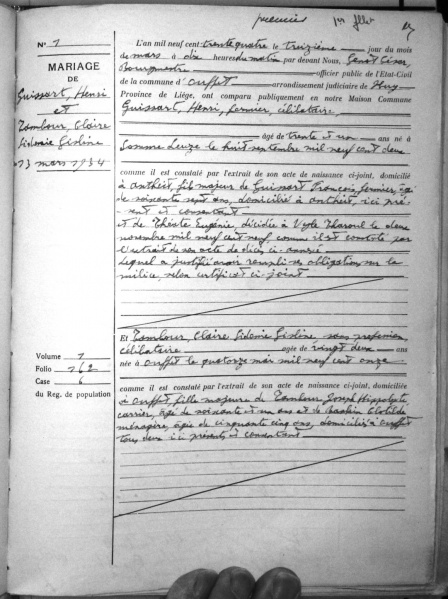 premier 1er fllet
N° 1
MARIAGE
DE
Guissart, Henri
et
Tambour Claire
Sidonie Gisline
13 mars 1934
L'an mil neuf cent trente quatre le treizième jour du mois
de mars à dix heures du matin par devant Nous,
Bourgmestre officier public de l'Etat-Civil
de la commune d' Ouffet arrondissement judiciaire de Huy
Province de Liège, ont comparu publiquement en notre Maison Commune
Guissart, Henri, fermier, célibataire,
âgé de trente et un ans né à
Somme Leuze le huit septembre mil neuf cent deux
comme il est constaté par l'extrait de son acte de naissance ci-joint, domicilié
à Antheit, fils majeur de Guissart François, fermier, âgé
de soixante sept ans, domicilié à Antheit, ici pré-
sent et consentant
et de Eugénie, décédée à Vyle Tharoul le deux
novembre mil neuf cent neuf, comme il est constaté par
l'extrait de son acte de décès ci-annexé
Lequel a justifié avoir rempli ses obligations sur la
milice, selon certificat ci-joint
Et Tambour, Claire, Sidonie Gisline, sans profession,
célibataire âgée de vingt deux ans
née à Ouffet le quatorze mai mil neuf cent onze
Volume 1
Folio 162
Case 6
du Reg. de population
comme il est constaté par l'extrait de son acte de naissance ci-joint, domiciliée
à Ouffet fille majeure de Tambour Joseph Hippolyte,
carrier, âgé de soixante et un ans et de Clotilde
ménagère, âgée de cinquante cinq ans, domiciliés à Ouffet
tous deux ici présents et consentant